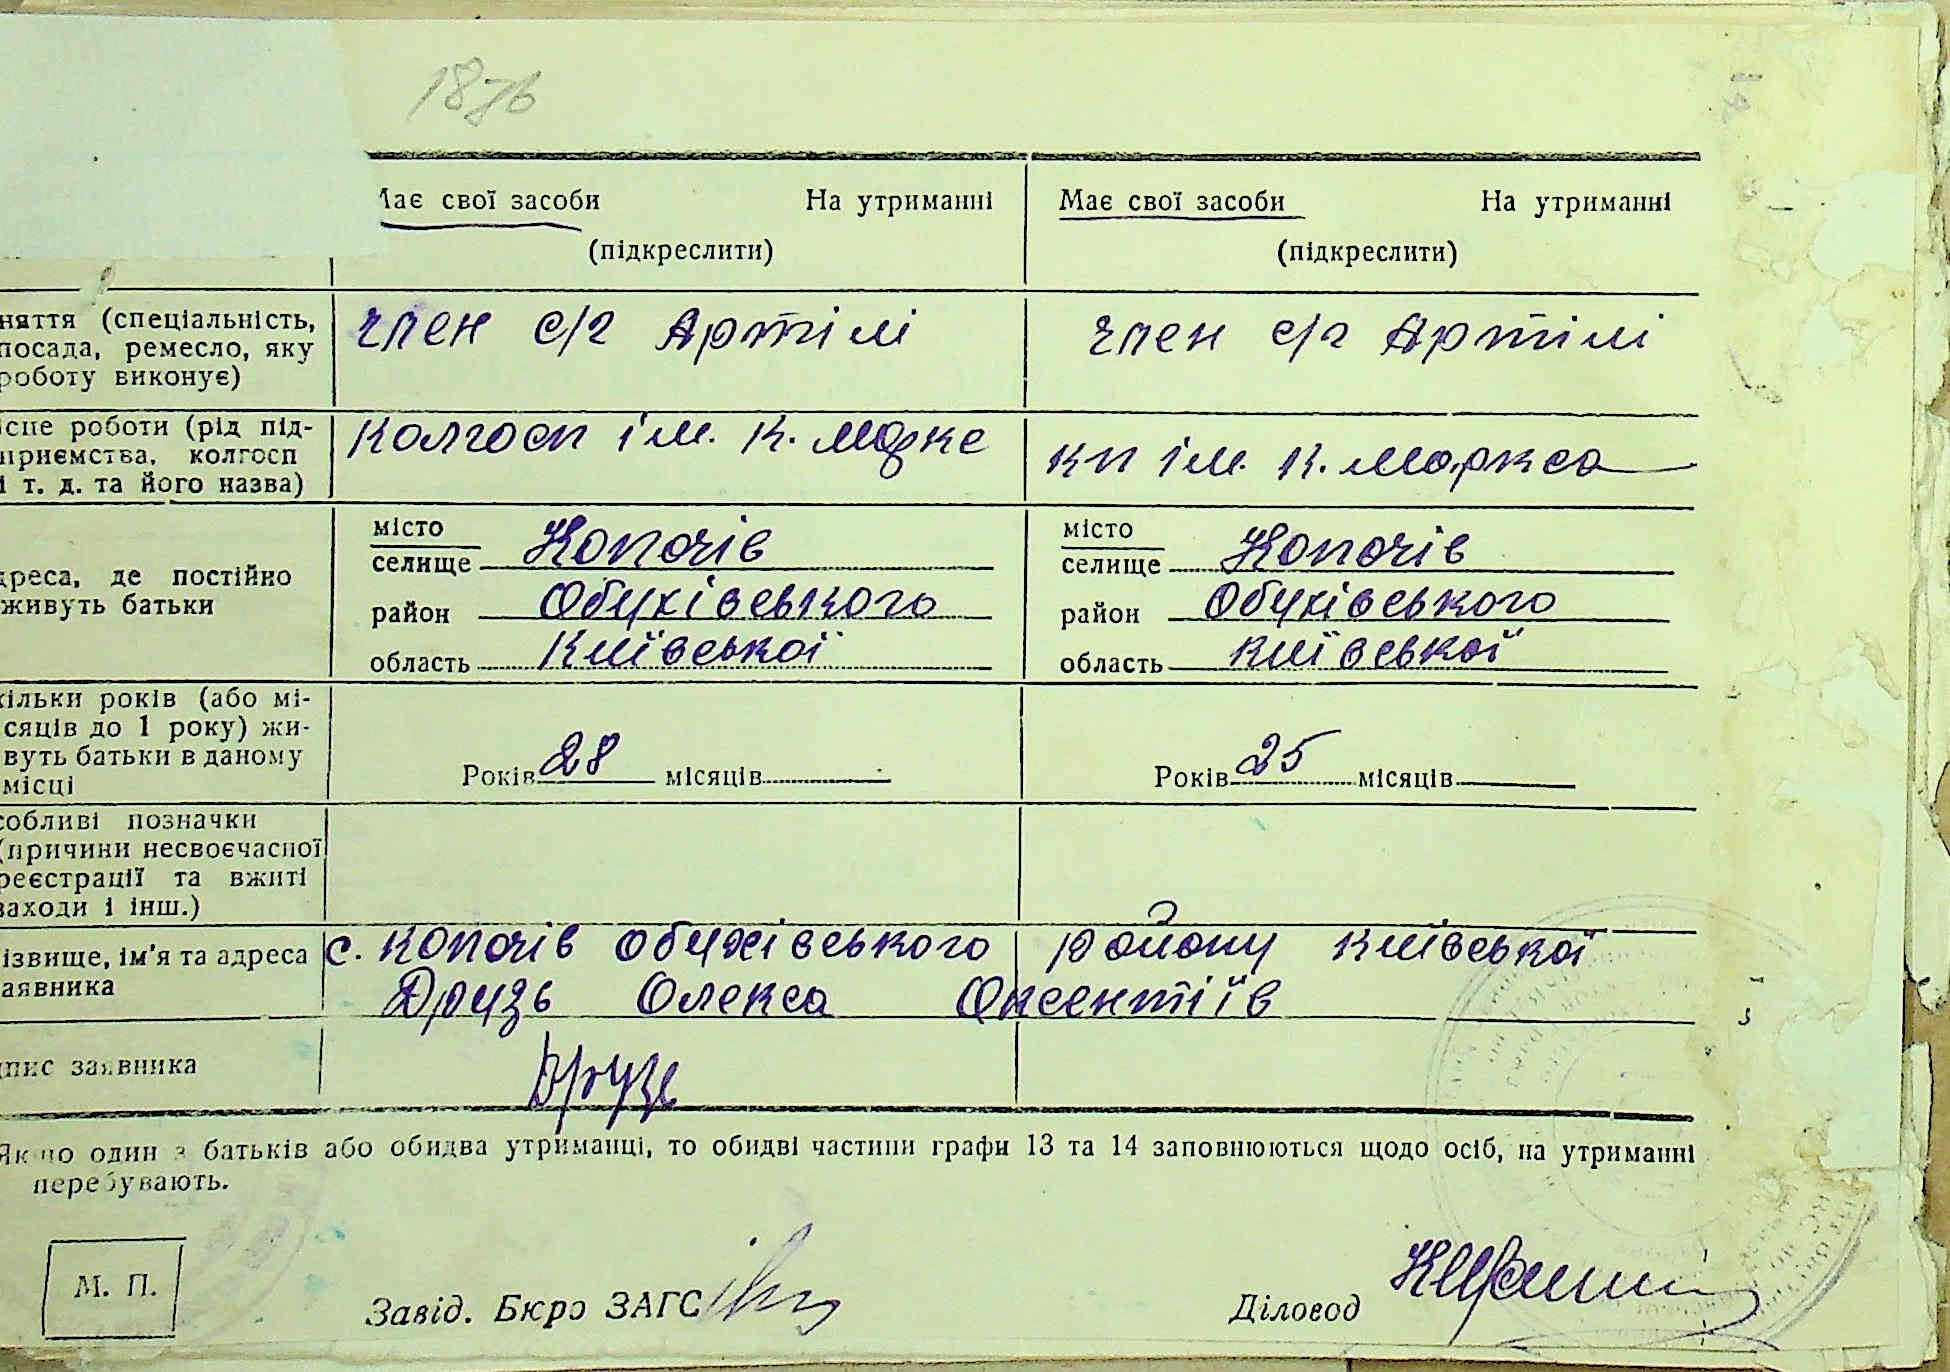 187б
Має свої засоби На утриманні Має свої засоби На утриманні
(підкреслити) (підкреслити)
няття (спеціальність, посада, ремесло, яку роботу виконує) член с/г Артілі член с/г Артілі
ісце роботи (рід підприємства, колгосп і т. д. та його назва) Колгосп ім. К. Маркс кп ім. К. Маркса
місто місто
селище Копачів селище Копачів
дреса, де постійно
живуть батьки
район Обухівського район Обухівського
область Київської область Київської
кільки років (або мі-
сяців до 1 року) жи-
вуть батьки в даному
місці
Років 28 місяців Років 25 місяців
собливі позначки
(причини несвоєчасної
реєстрації та вжиті
заходи і інш.)
ізвище, ім'я та адреса
заявника
с. Копачів Обухівського району Київської
Друзь Олекса Оксентіїв
дпис заявника Друзь
Якщо один з батьків або обидва утриманці, то обидві частини графи 13 та 14 заповнюються щодо осіб, на утриманні
перебувають.
М. П.
Завід. Бюро ЗАГС Діловод